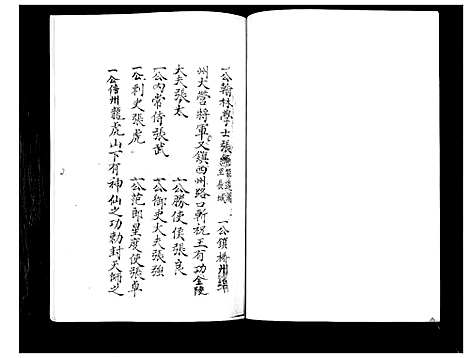 一公翰林學士張 長城 一公鎮 州
州大營將軍又鎮西州路口斬祝王有功金陵
大夫張太 一公勝使侯張良
一公內常侍張武 一公御史大夫張強
一公刺史張虎 一公范郎皇度使張卓
一公信州龍虎山下有神仙之功勅封天師之